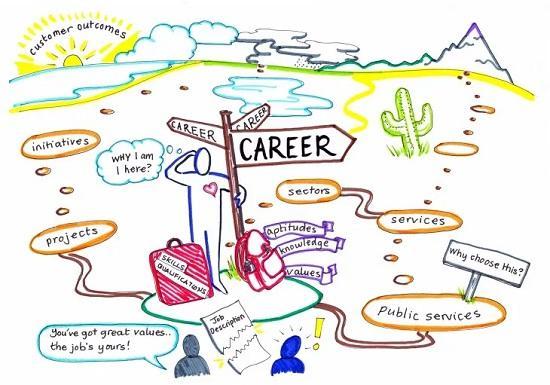 customer outcomes
initiatives
projects
WHY I AM
I HERE?
CAREER
CAREER
CAREER
sectors
services
aptitudes
knowledge
values
SKILLS
QUALIFICATIONS
Why choose this?
Public services
Job
Description
You've got great values..
the job's yours!
!